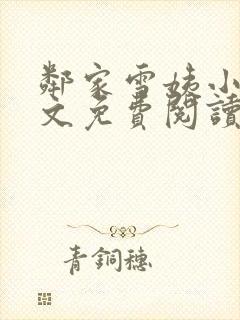 鄰家雪姨小
文免費閱讀
青銅穗